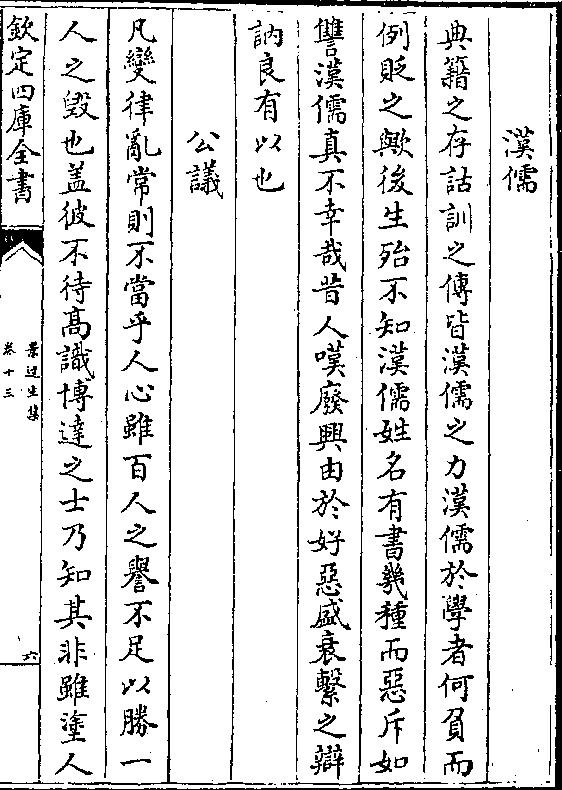 漢儒
典籍之存詁訓之傳皆漢儒之力漢儒於學者何負而
例貶之歟後生殆不知漢儒姓名有書幾種而惡斥如
讐漢儒真不幸哉昔人嘆廢興由於好惡盛衰繫之辯
訥良有以也
公議
凡變律亂常則不當乎人心雖百人之譽不足以勝一
人之毀也盖彼不待高識博達之士乃知其非雖塗人
欽定四庫全書
景迂生集
卷十三
六